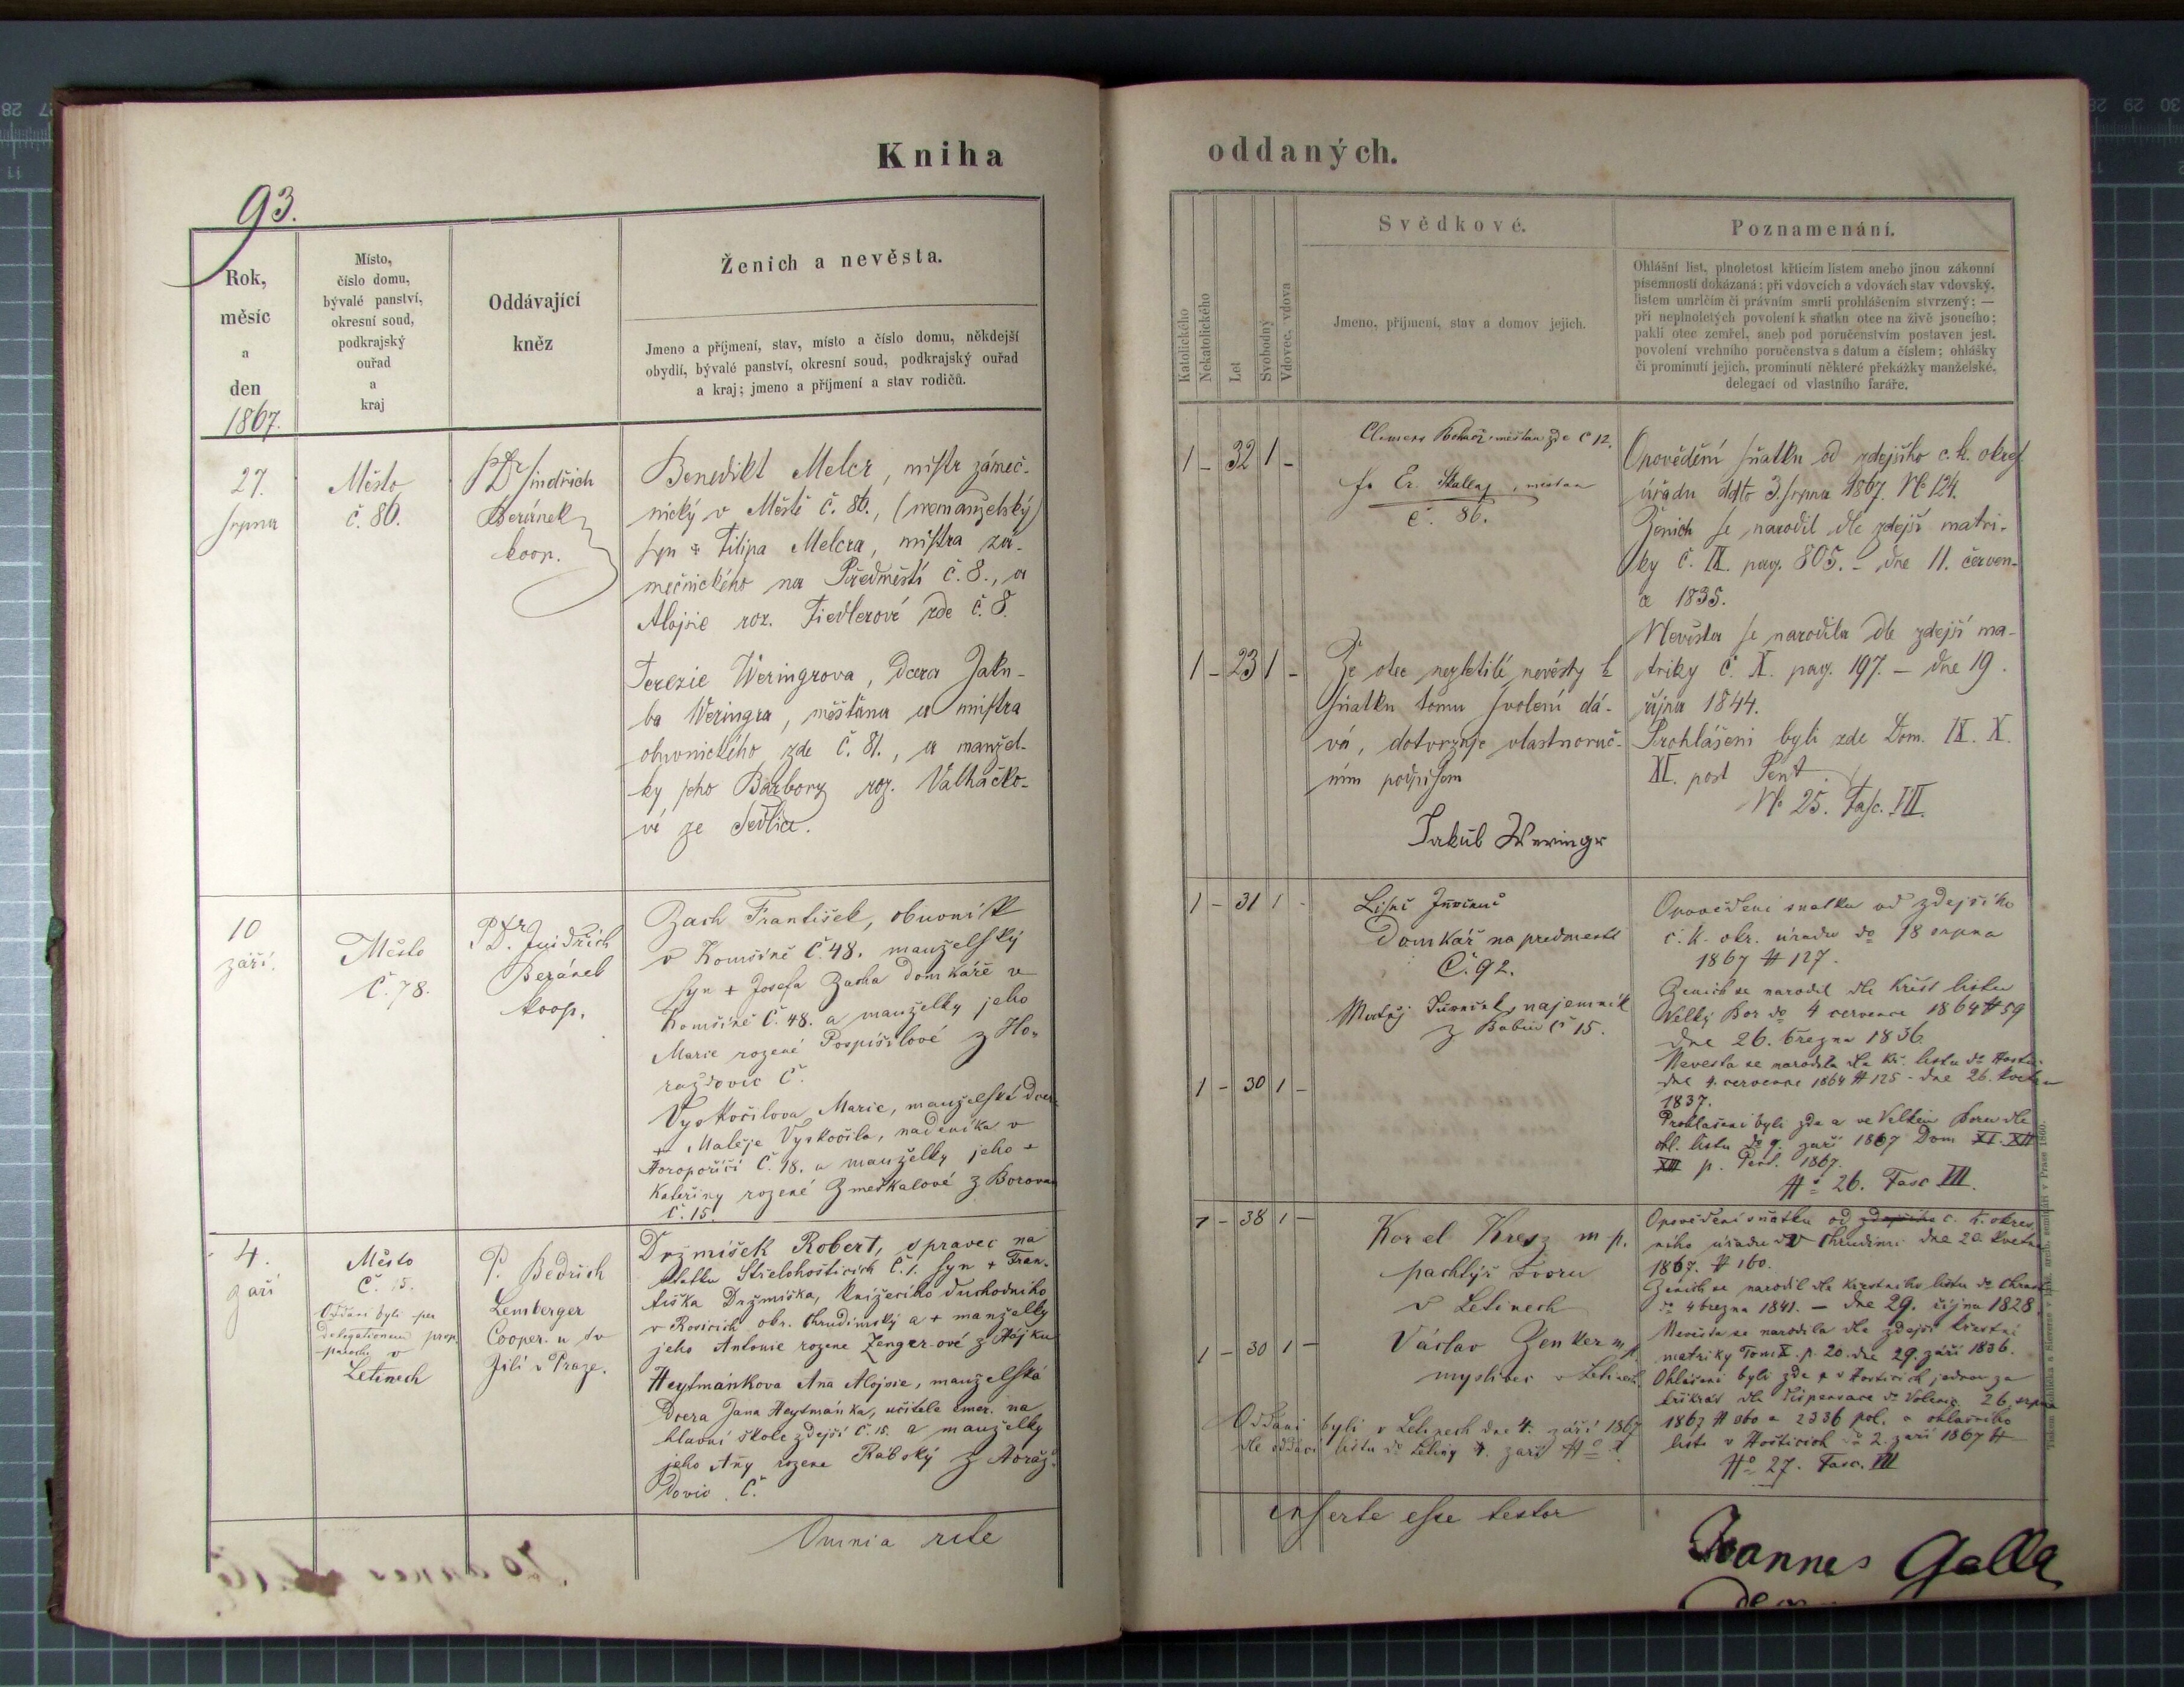 Kniha
93.
Rok,
měsíc
a
den
1867.
Místo,
číslo domu,
bývalé panství,
okresní soud,
podkrajský
ouřad
a
kraj
Oddávající
kněz
Ženich a nevěsta.
Jmeno a příjmení, stav, místo a číslo domu, někdejší
obydlí, bývalé panství, okresní soud, podkrajský ouřad
a kraj; jmeno a příjmení a stav rodičů.
27.
srpna
Město
č. 86.
P. Dr Jindřich
Beránek
koop.
Benedikt Melcr, mistr zámeč-
nický v Městě č. 86., (nemanželský)
syn Filipa Melcra, mistra zá-
mečnického na Předměstí č. 8., a
Alojsie roz. Fiedlerové zde č. 8.
Terezie Weringrova, dcera Jaku-
ba Weringra, měšťana a mistra
obuvnického zde č. 81., a manžel-
ky jeho Barbory roz. Valhačko-
vé ze Sedlice.
10
září.
Město
Č. 78.
P. Dr. Jindřich
Beránek
koop.
Zach František, obuvník
v Komšíně Č. 48. manželský
syn + Josefa Zacha domkáře v
Komšíně Č. 48. a manželky jeho
Marie rozené Pospíšilové z Ho-
raždovic Č.
Vyskočilova Marie, manželská dcera
+ Matěje Vyskočila, nadeníka v
Horopoříčí Č. 18. a manželky jeho +
Kateřiny rozené Zmeškalové z Borovan
Č. 15.
4.
září
Město
Č. 15.
Oddáni byli per
delegationem prop.
parochi v
Letinech
P. Bedřich
Lemberger
Cooper. u sv
Jilí v Praze.
Držmišek Robert, spravec na
statku Střelohošticích č. 1. syn + Fran-
tiška Držmiška, knížecího důchodního
v Rosicích okr. Chrudimský a + manželky
jeho Antonie rozene Zenger-ové z Hájku
Heytmánkova Aňa Alojsie, manželská
dcera Jana Heytmánka, učitele emer. na
hlavní škole zdejší č. 15. a manželky
jeho Aňy rozene Rábský z Horaž-
dovic Č.
Omnia rite
oddaných.
Katolického
Nekatolického
Let
Svobodný
Vdovec, vdova
Svědkové.
Jmeno, příjmení, stav a domov jejich.
Poznamenání.
Ohlášní list, plnoletost křticím listem anebo jinou zákonní
písemností dokázaná; při vdovcích a vdovách stav vdovský.
listem umrlčím či právním smrti prohlášením stvrzený; —
při neplnoletých povolení k sňatku otce na živě jsoucího;
pakli otec zemřel, aneb pod poručenstvím postaven jest.
povolení vrchního poručenstva s datum a číslem; ohlášky
či prominutí jejich, prominutí některé překážky manželské,
delegací od vlastního faráře.
1 – 32 1 –
Clemens měšťan zde č 12.
měšťan
č. 86.
Opovědění sňatku od zdejšího c. k. okres
úřadu ddto 3. srpna 1867. No 124.
Ženich se narodil dle zdejší matri-
ky č. IX. pag. 805. – dne 11. červen-
a 1835.
1 – 23 1 –
Že otec nezletilé nevěsty k
sňatku tomu svolení dá-
vá, dotvrzuje vlastnoruč-
ním podpisem
Jakub Weringr
Nevěsta se narodila dle zdejší ma-
triky č. X. pag. 197. – dne 19.
října 1844.
Prohlášeni byli zde Dom. IX. X.
XI. post Pent.
No 25. Fasc. III.
1 – 31 1 -
Domkář na predmesti
Č. 92.
Matěj najemník
z Babin č 15.
Opovědění snatku od zdejšího
c. k. okr. úradu do 18 srpna
1867 # 127.
Ženich se narodil dle křest listu
Velký Bor do 4 července 1864 # 59
dne 26. března 1836.
1 – 30 1 –
Nevesta se narodila dle kř. listu
dne 4. července 1864 # 125 – dne 26. května
1837.
Prohlašeni byli zde a ve Velkém Boru dle
ohl. listu do 9. září 1867 Dom XI. XII
XIII p. Pent. 1867.
No 26. Fasc III.
1 – 38 1 –
Karel Kresz m p.
pachtýř dvoru
v Letinech
Opovědění sňatku od zdejšího c. k. okres.
ního úřadu v Chrudimi dne 20. května
1867. # 160.
Ženich se narodil dle křestního listu
do 4 března 1841. — dne 29. října 1828.
1 – 30 1 –
Václav Zenker m p.
myslivec v Letinech
Nevěsta se narodila dle zdejší křestní
matriky Tom X. p. 20. dne 29. září 1836.
Ohlášeni byli zde a v Hosticích jednou za
třikrát dle dispensace do Volenic 26. srpna
1867 # 2336 pol. a ohlasního
listu v Hošticích do 2. září 1867 #
No 27. Fasc. III
Oddáni byli v Letinech dne 4. září 1867
dle oddací listu do Letiny 4. září
inserta esse testor
Joannes Galla